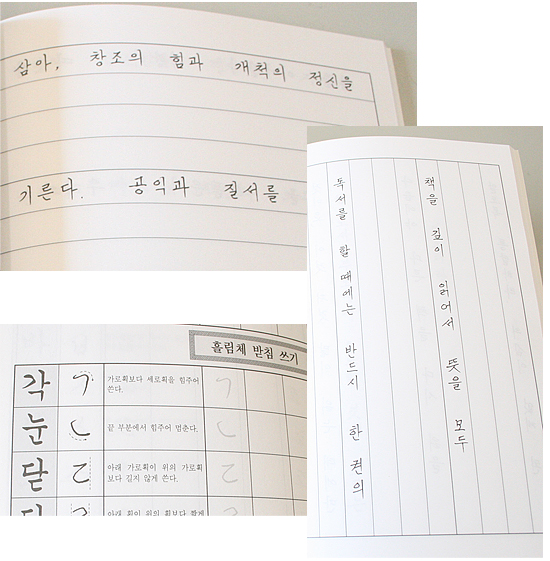 삼아, 창조의 힘과 개척의 정신을
기른다. 공익과 질서를
독서를 할 때에는 반드시 한 권의
책을 깊이 읽어서 뜻을 모두
흘림체 받침 쓰기
각 ㄱ 가로획보다 세로획을 힘주어
쓴다. ㄱ
눈 ㄴ 끝 부분에서 힘주어 멈춘다. ㄴ
닫 ㄷ 아래 가로획이 위의 가로획
보다 길지 않게 쓴다. ㄷ
아래 획이 위의 획보다 짧게